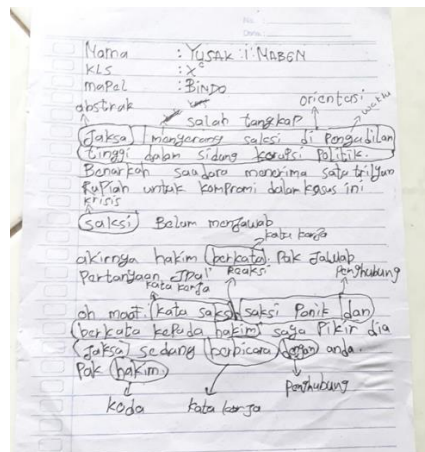 No.
Date
Nama : YUSAK I. MABEN
KLS : X^c
maPel : BINDO
abstrak
orientasi
waktu
salah tangkap
Jaksa menyerang saksi di Pengadilan
tinggi dalam sidang korupsi Politik.
Benarkah saudara menerima satu trilyun
RuPiah untuk kompromi dalam kasus ini
krisis
saksi Belum menjawab
kata kerja
akirnya hakim berkata. Pak Jawab
Pertanyaan
kata kerja
Reaksi
Penghubung
oh maaf. kata saksi saksi Panik dan
berkata kepada hakim saya Pikir dia
Jaksa sedang berbicara dengan anda.
Pak hakim.
Penghubung
koda
kata kerja